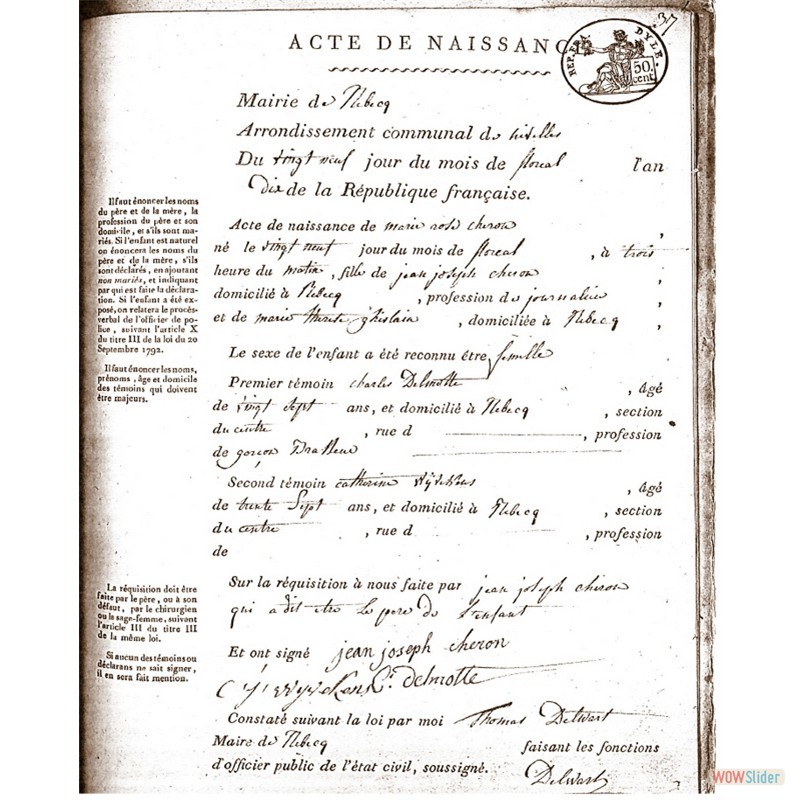 37
ACTE DE NAISSANCE
REP. FRA. DYLE.
50. cent.
Mairie de Rebecq
Arrondissement communal de nivelles
Du vingt neuf jour du mois de floreal l'an
Dix de la République française.
Il faut énoncer les noms
du père et de la mère, la
profession du père et son
domicile, et s'ils sont ma-
riés. Si l'enfant est naturel
on énoncera les noms du
père et de la mère, s'ils
sont déclarés, en ajoutant
non mariés, et indiquant
par qui est faite la déclara-
tion. Si l'enfant a été ex-
posé, on relatera le procès-
verbal de l'officier de po-
lice, suivant l'article X
du titre III de la loi du 20
Septembre 1792.
Il faut énoncer les noms,
prénoms, âge et domicile
des témoins qui doivent
être majeurs.
Acte de naissance de marie rose cheron ,
né le vingt neuf jour du mois de floreal , à trois
heure du matin , fille de jean joseph cheron ,
domicilié à Rebecq , profession de journalier ,
et de marie therese ghislain , domiciliée à Rebecq ,
Le sexe de l'enfant a été reconnu être femelle
Premier témoin charles Delmotte , âgé
de vingt sept ans, et domicilié à Rebecq , section
du centre , rue d , profession
de garçon Brasseur
Second témoin catherine , âgé
de trente Sept ans, et domicilié à Rebecq , section
du centre , rue d , profession
de
La réquisition doit être
faite par le père, ou à son
défaut, par le chirurgien
ou la sage-femme, suivant
l'article III du titre III
de la même loi.
Si aucun des témoins ou
déclarans ne sait signer,
il en sera fait mention.
Sur la réquisition à nous faite par jean joseph cheron
qui a dit etre Le pere de L'enfant
Et ont signé jean joseph cheron
Ch. delmotte
Constaté suivant la loi par moi Thomas Delwart
Maire de Rebecq faisant les fonctions
d'officier public de l'état civil, soussigné.
Delwart
WOWSlider